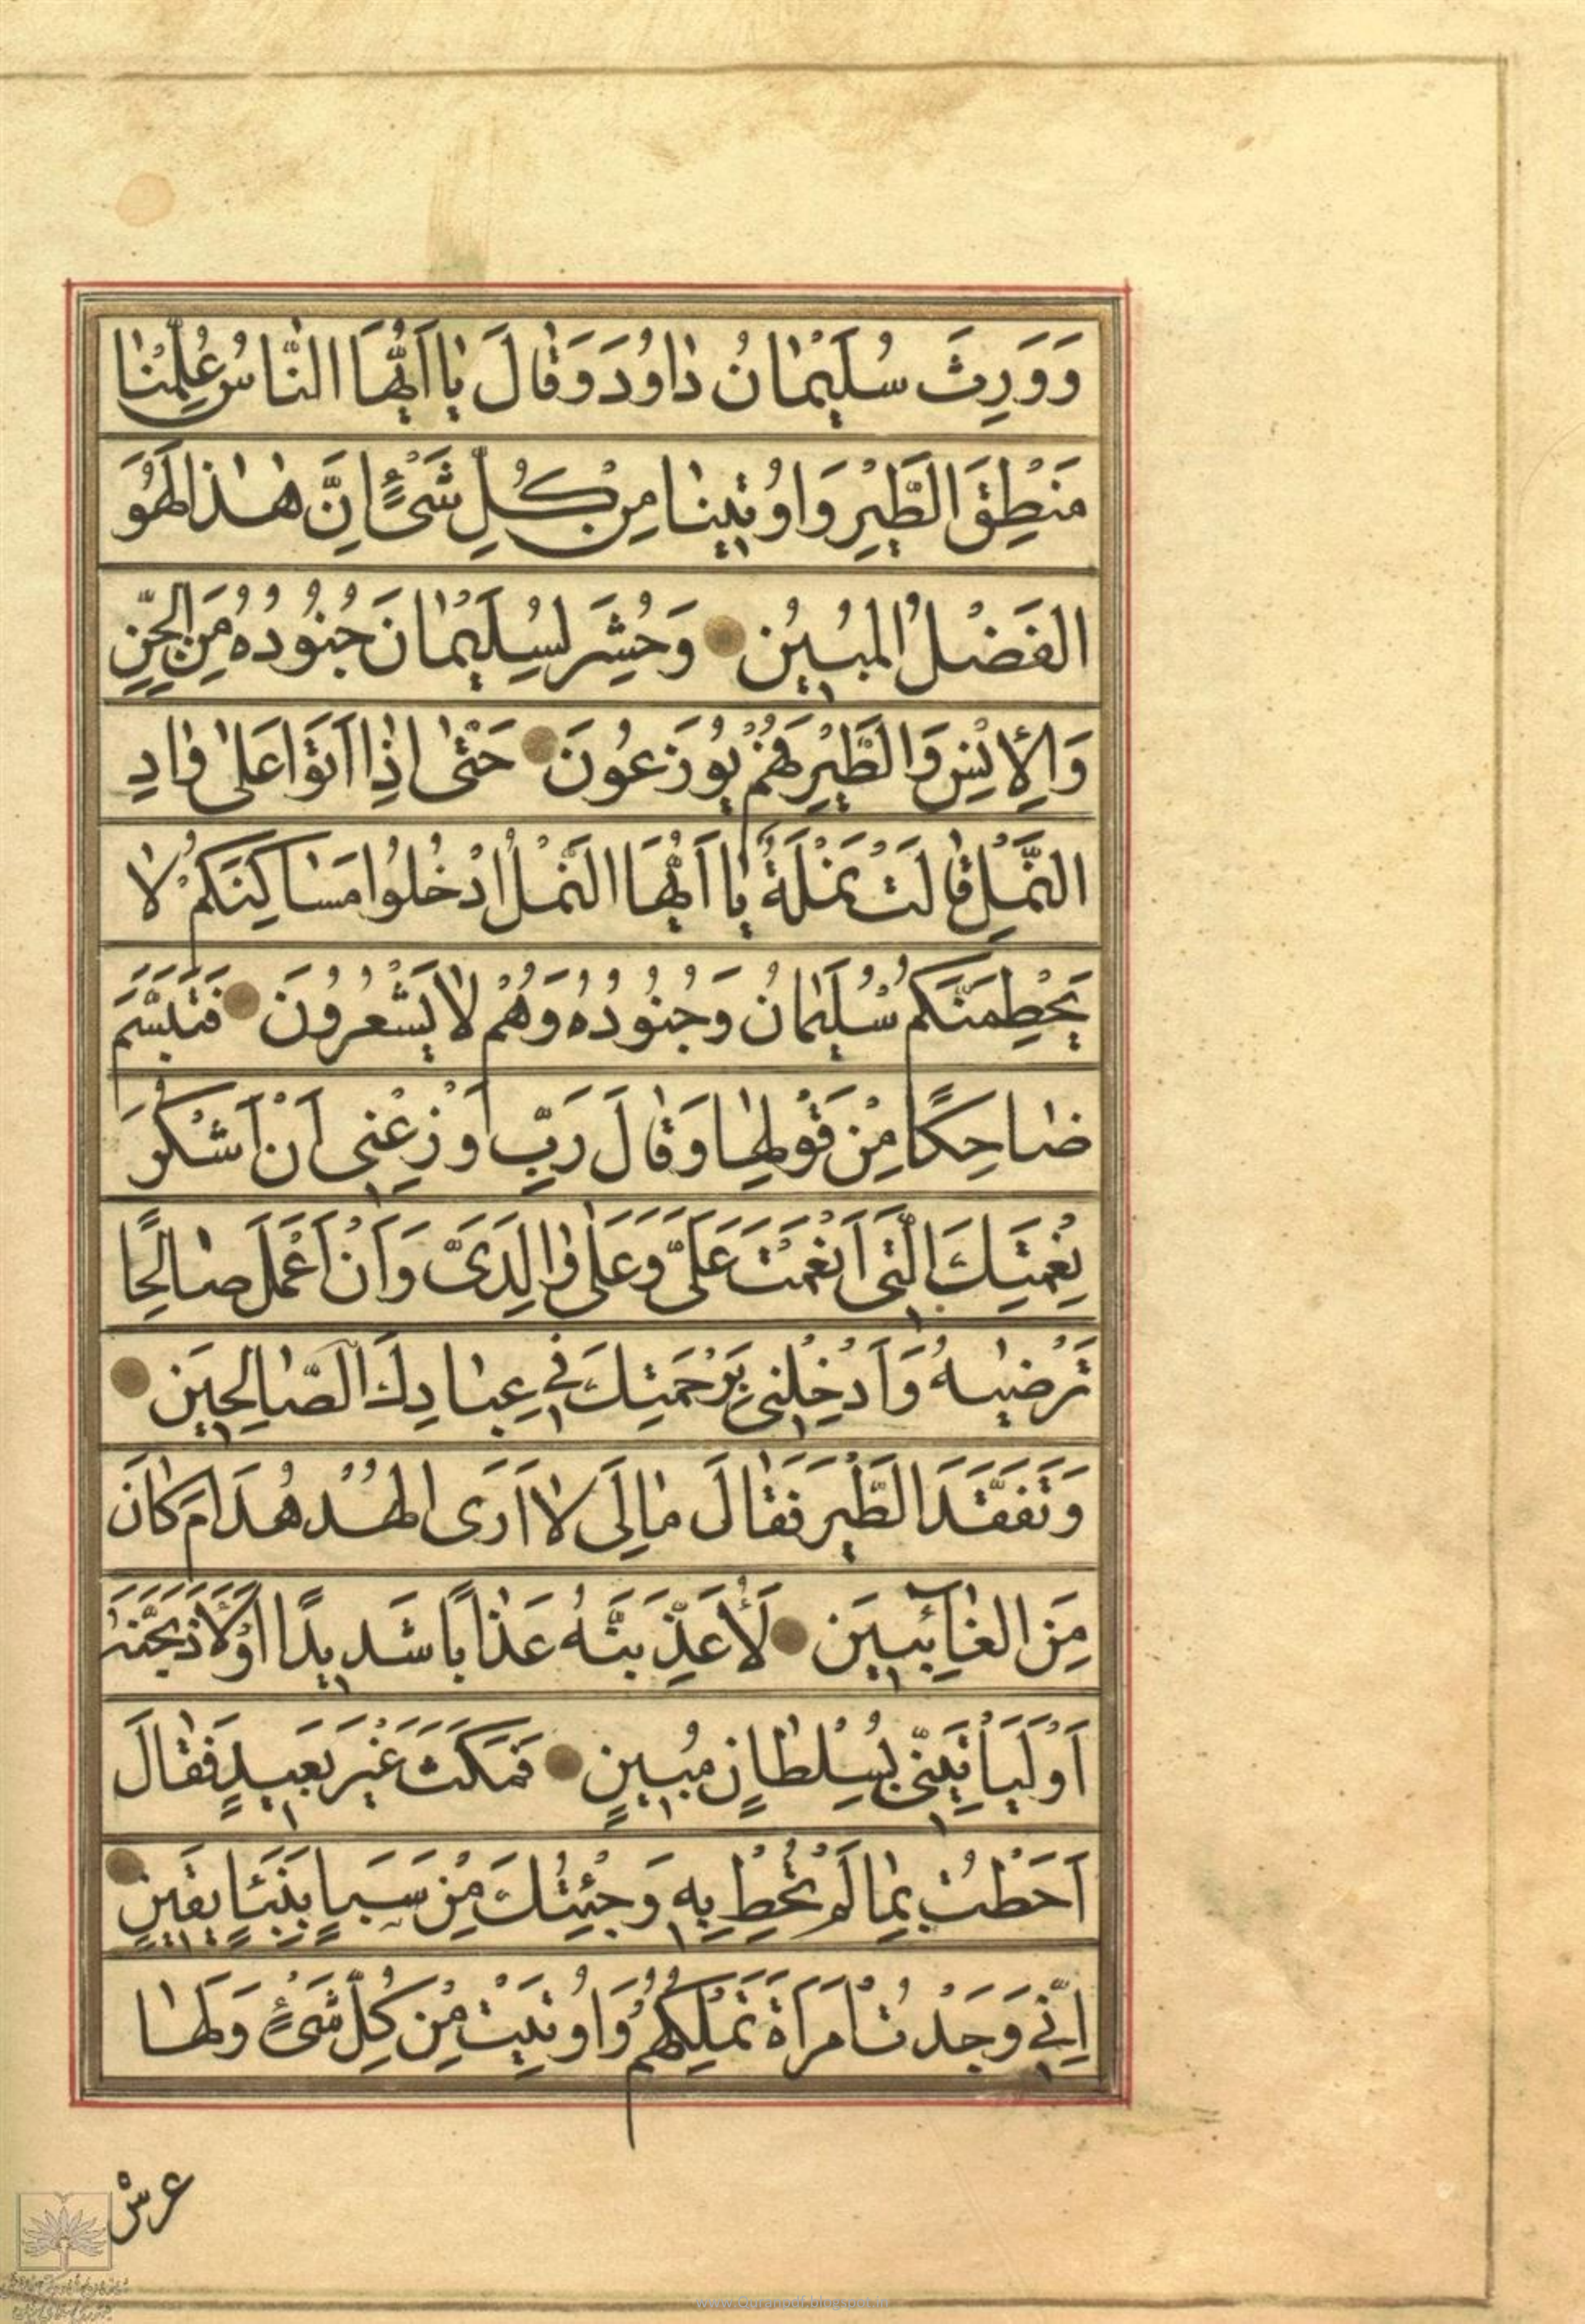 وَوَرِثَ سُلَيْمٰانُ دٰاوُدَ وَقٰالَ يٰا اَيُّهَا النّٰاسُ عُلِّمْنٰا
مَنْطِقَ الطَّيْرِ وَاُوتِينٰا مِنْ كُلِّ شَىْءٍ اِنَّ هٰذٰا لَهُوَ
الفَضْلُ المُبِيُن وَحُشِرَ لِسُلَيْمٰانَ جُنُودُهُ مِنَ الجِنِّ
وَالْاِنْسِ وَالطَّيْرِ فَهُمْ يُوزَعُونَ حَتّٰى اِذٰا اَتَوْا عَلىٰ وٰادِ
النَّمْلِ قٰالَتْ نَمْلَةٌ يٰا اَيُّهَا النَّمْلُ ادْخُلُوا مَسٰاكِنَكُمْ لٰا
يَحْطِمَنَّكُمْ سُلَيْمٰانُ وَجُنُودُهُ وَهُمْ لٰا يَشْعُرُونَ فَتَبَسَّمَ
ضٰاحِكًا مِنْ قَوْلِهٰا وَقٰالَ رَبِّ اَوْزِعْنِى اَنْ اَشْكُرَ
نِعْمَتَكَ الَّتِى اَنْعَمْتَ عَلَىَّ وَعَلىٰ وٰالِدَىَّ وَاَنْ اَعْمَلَ صٰالِحًا
تَرْضٰيهُ وَاَدْخِلْنِى بِرَحْمَتِكَ فِي عِبٰادِكَ الصّٰالِحِينَ
وَتَفَقَّدَ الطَّيْرَ فَقٰالَ مٰالِىَ لٰا اَرَى الْهُدْهُدَ اَمْ كٰانَ
مِنَ الغٰآئِبِينَ لَاُعَذِّبَنَّهُ عَذٰابًا شَدِيدًا اَوْ لَاَذْبَحَنَّهُ
اَوْ لَيَأْتِيَنِّى بِسُلْطٰانٍ مُبِينٍ فَمَكَثَ غَيْرَ بَعِيدٍ فَقٰالَ
اَحَطْتُ بِمٰا لَمْ تُحِطْ بِهِ وَجِئْتُكَ مِنْ سَبَإٍ بِنَبَإٍ يَقِينٍ
اِنِّي وَجَدْتُ امْرَاَةً تَمْلِكُهُمْ وَاُوتِيَتْ مِنْ كُلِّ شَىْءٍ وَلَهٰا
عرش